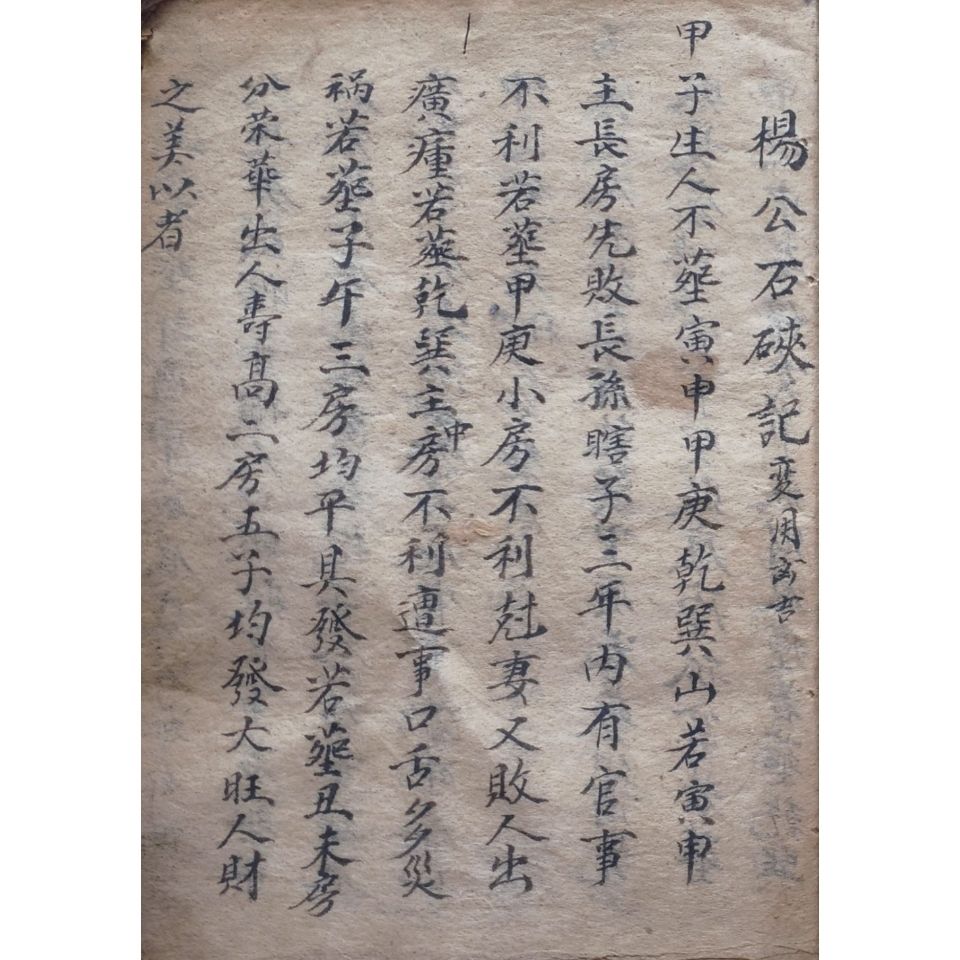 楊公石硤記変用玄吉
甲子生人不塟寅申甲庚乾巽山若寅申
主長房先敗長孫瞎子三年内有官事
不利若塟甲庚小房不利尅妻又敗人出
癀瘇若塟乾巽主中房不利遭事口舌多災
禍若塟子午三房均平具發若塟丑未房
分荣華出人壽高二房五子均發大旺人財
之美以者